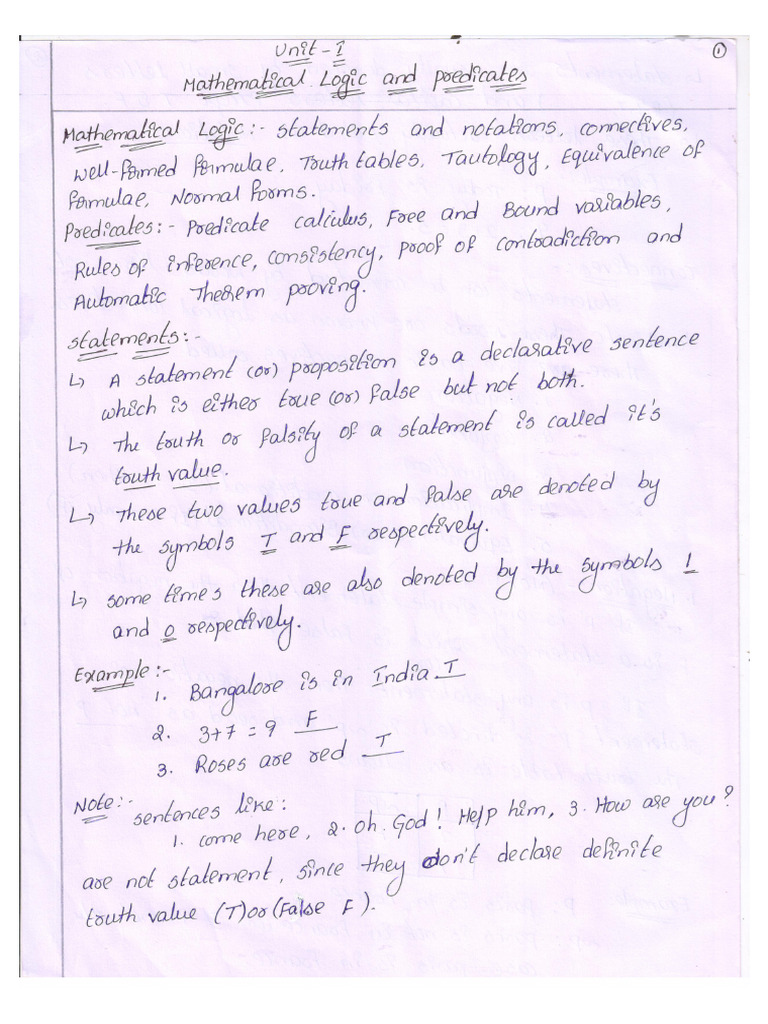 1
Unit - I
Mathematical Logic and predicates
Mathematical Logic :- statements and notations, connectives,
well-formed formulae, Truth tables, Tautology, Equivalence of
formulae, Normal forms.
Predicates :- Predicate calculus, Free and Bound variables,
Rules of inference, consistency, proof of contradiction and
Automatic Theorem proving.
statements :-
↳ A statement (or) proposition is a declarative sentence
which is either true (or) false but not both.
↳ The truth or falsity of a statement is called it's
truth value.
↳ These two values true and false are denoted by
the symbols T and F respectively.
↳ some times these are also denoted by the symbols 1
and 0 respectively.
Example :-
1. Bangalore is in India T
2. 3+7 = 9 F
3. Roses are red T
Note :- sentences like :
1. come here, 2. oh. God! Help him, 3. How are you?
are not statement, since they don't declare definite
truth value (T) or (False F).